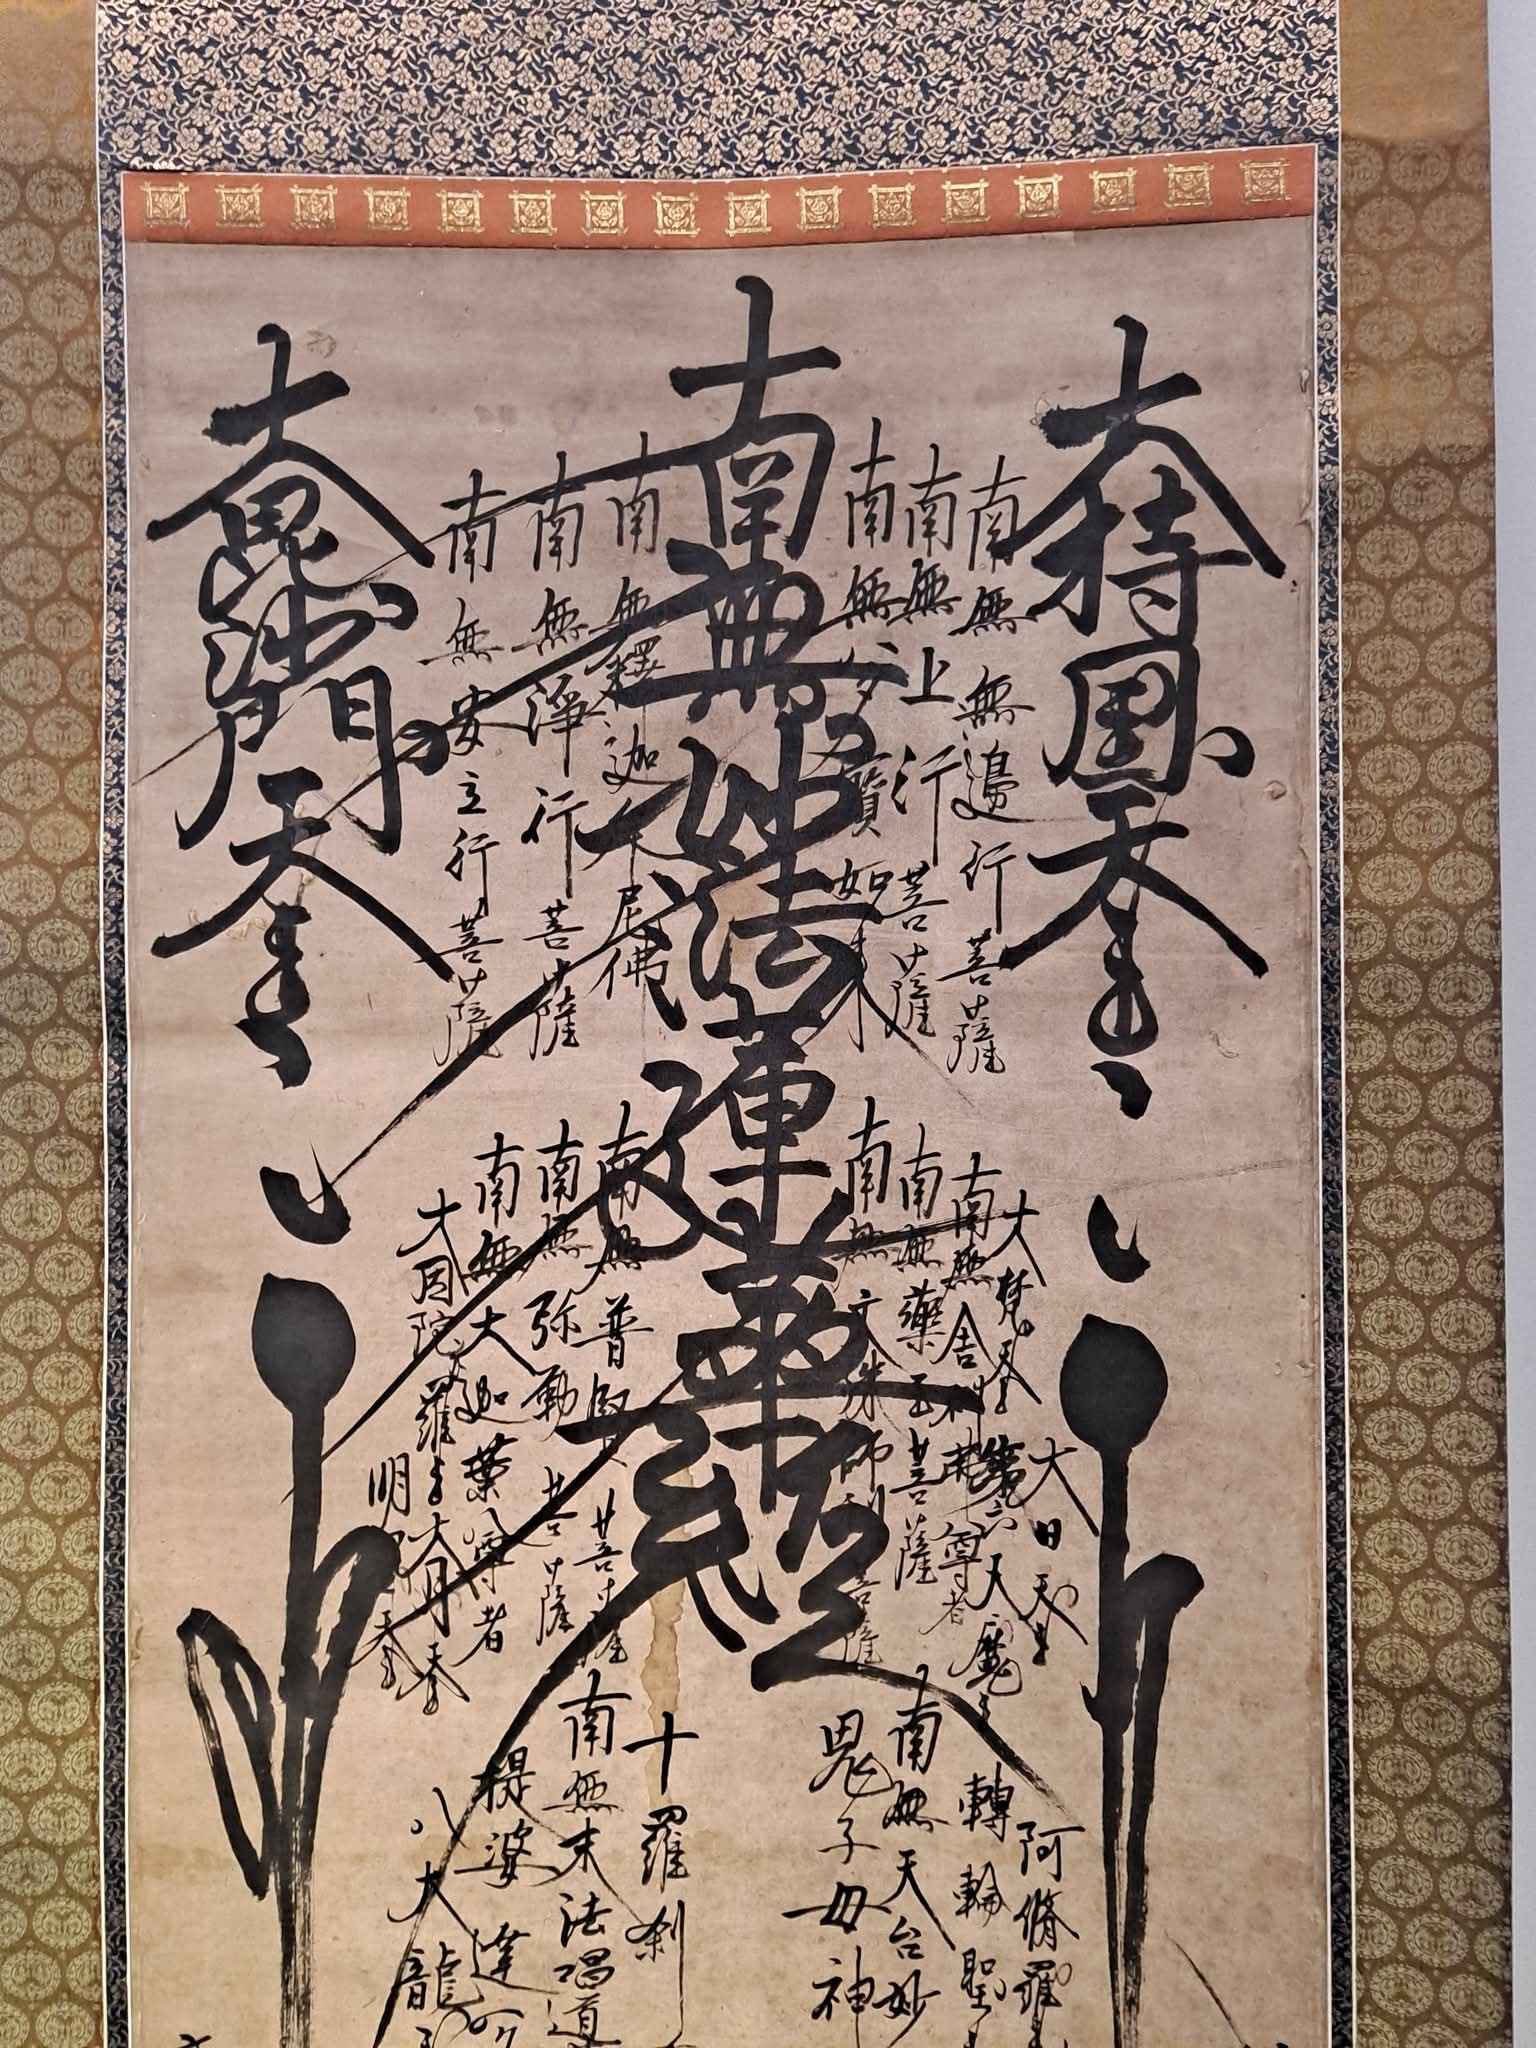 大持國天王
南無無邊行菩薩
南無上行菩薩
南無多寶如来
南無妙法蓮華経
南無釋迦牟尼佛
南無淨行菩薩
南無安立行菩薩
大毘沙門天王
大日天王
大梵天王
第六天魔王
南無舎利弗尊者
南無薬王菩薩
南無文殊師利菩薩
南無普賢菩薩
南無弥勒菩薩
南無大迦葉尊者
大月天王
明星天王
阿脩羅王
轉輪聖王
南無天台妙
鬼子母神
十羅刹
南無末法唱道
提婆達
八大龍